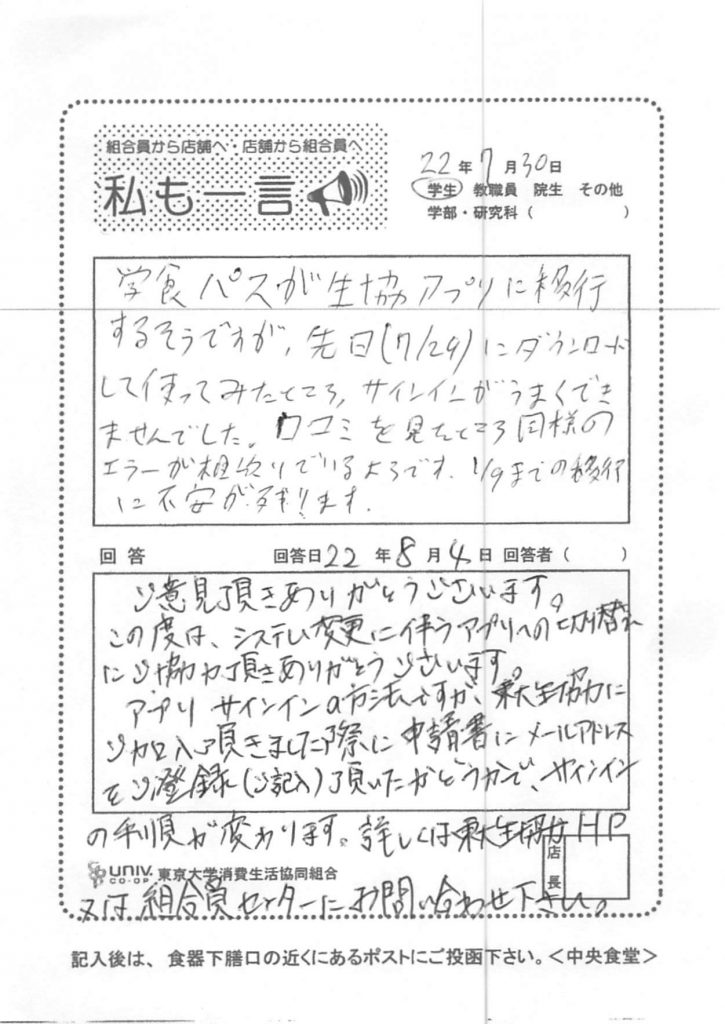 組合員から店舗へ・店舗から組合員へ
私も一言
22年7月30日
学生 教職員 院生 その他
学部・研究科（　　　　　　）
学食パスが生協アプリに移行
するそうですが、先日(7/29)にダウンロード
して使ってみたところ、サインインがうまくでき
ませんでした。口コミを見たところ同様の
エラーが相次いでいるようです。1/9までの移行
に不安が残ります。
回答 回答日22年8月4日 回答者（　　　）
ご意見頂きありがとうございます。
この度は、システム変更に伴うアプリへの切り替え
にご協力頂きありがとうございます。
アプリサインインの方法ですが、東大生協に
ご加入頂きました際に申請書にメールアドレス
をご登録(ご記入)頂いたかどうかで、サインイン
の手順が変わります。詳しくは東大生協HP
UNIV. CO-OP 東京大学消費生活協同組合
店長
又は組合員センターにお問い合わせ下さい。
記入後は、食器下膳口の近くにあるポストにご投函下さい。＜中央食堂＞